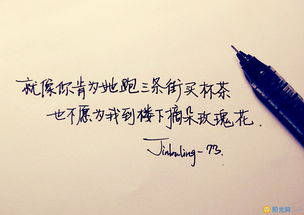 就像你肯为她跑三条街买杯茶
也不愿为我到楼下摘朵玫瑰花.